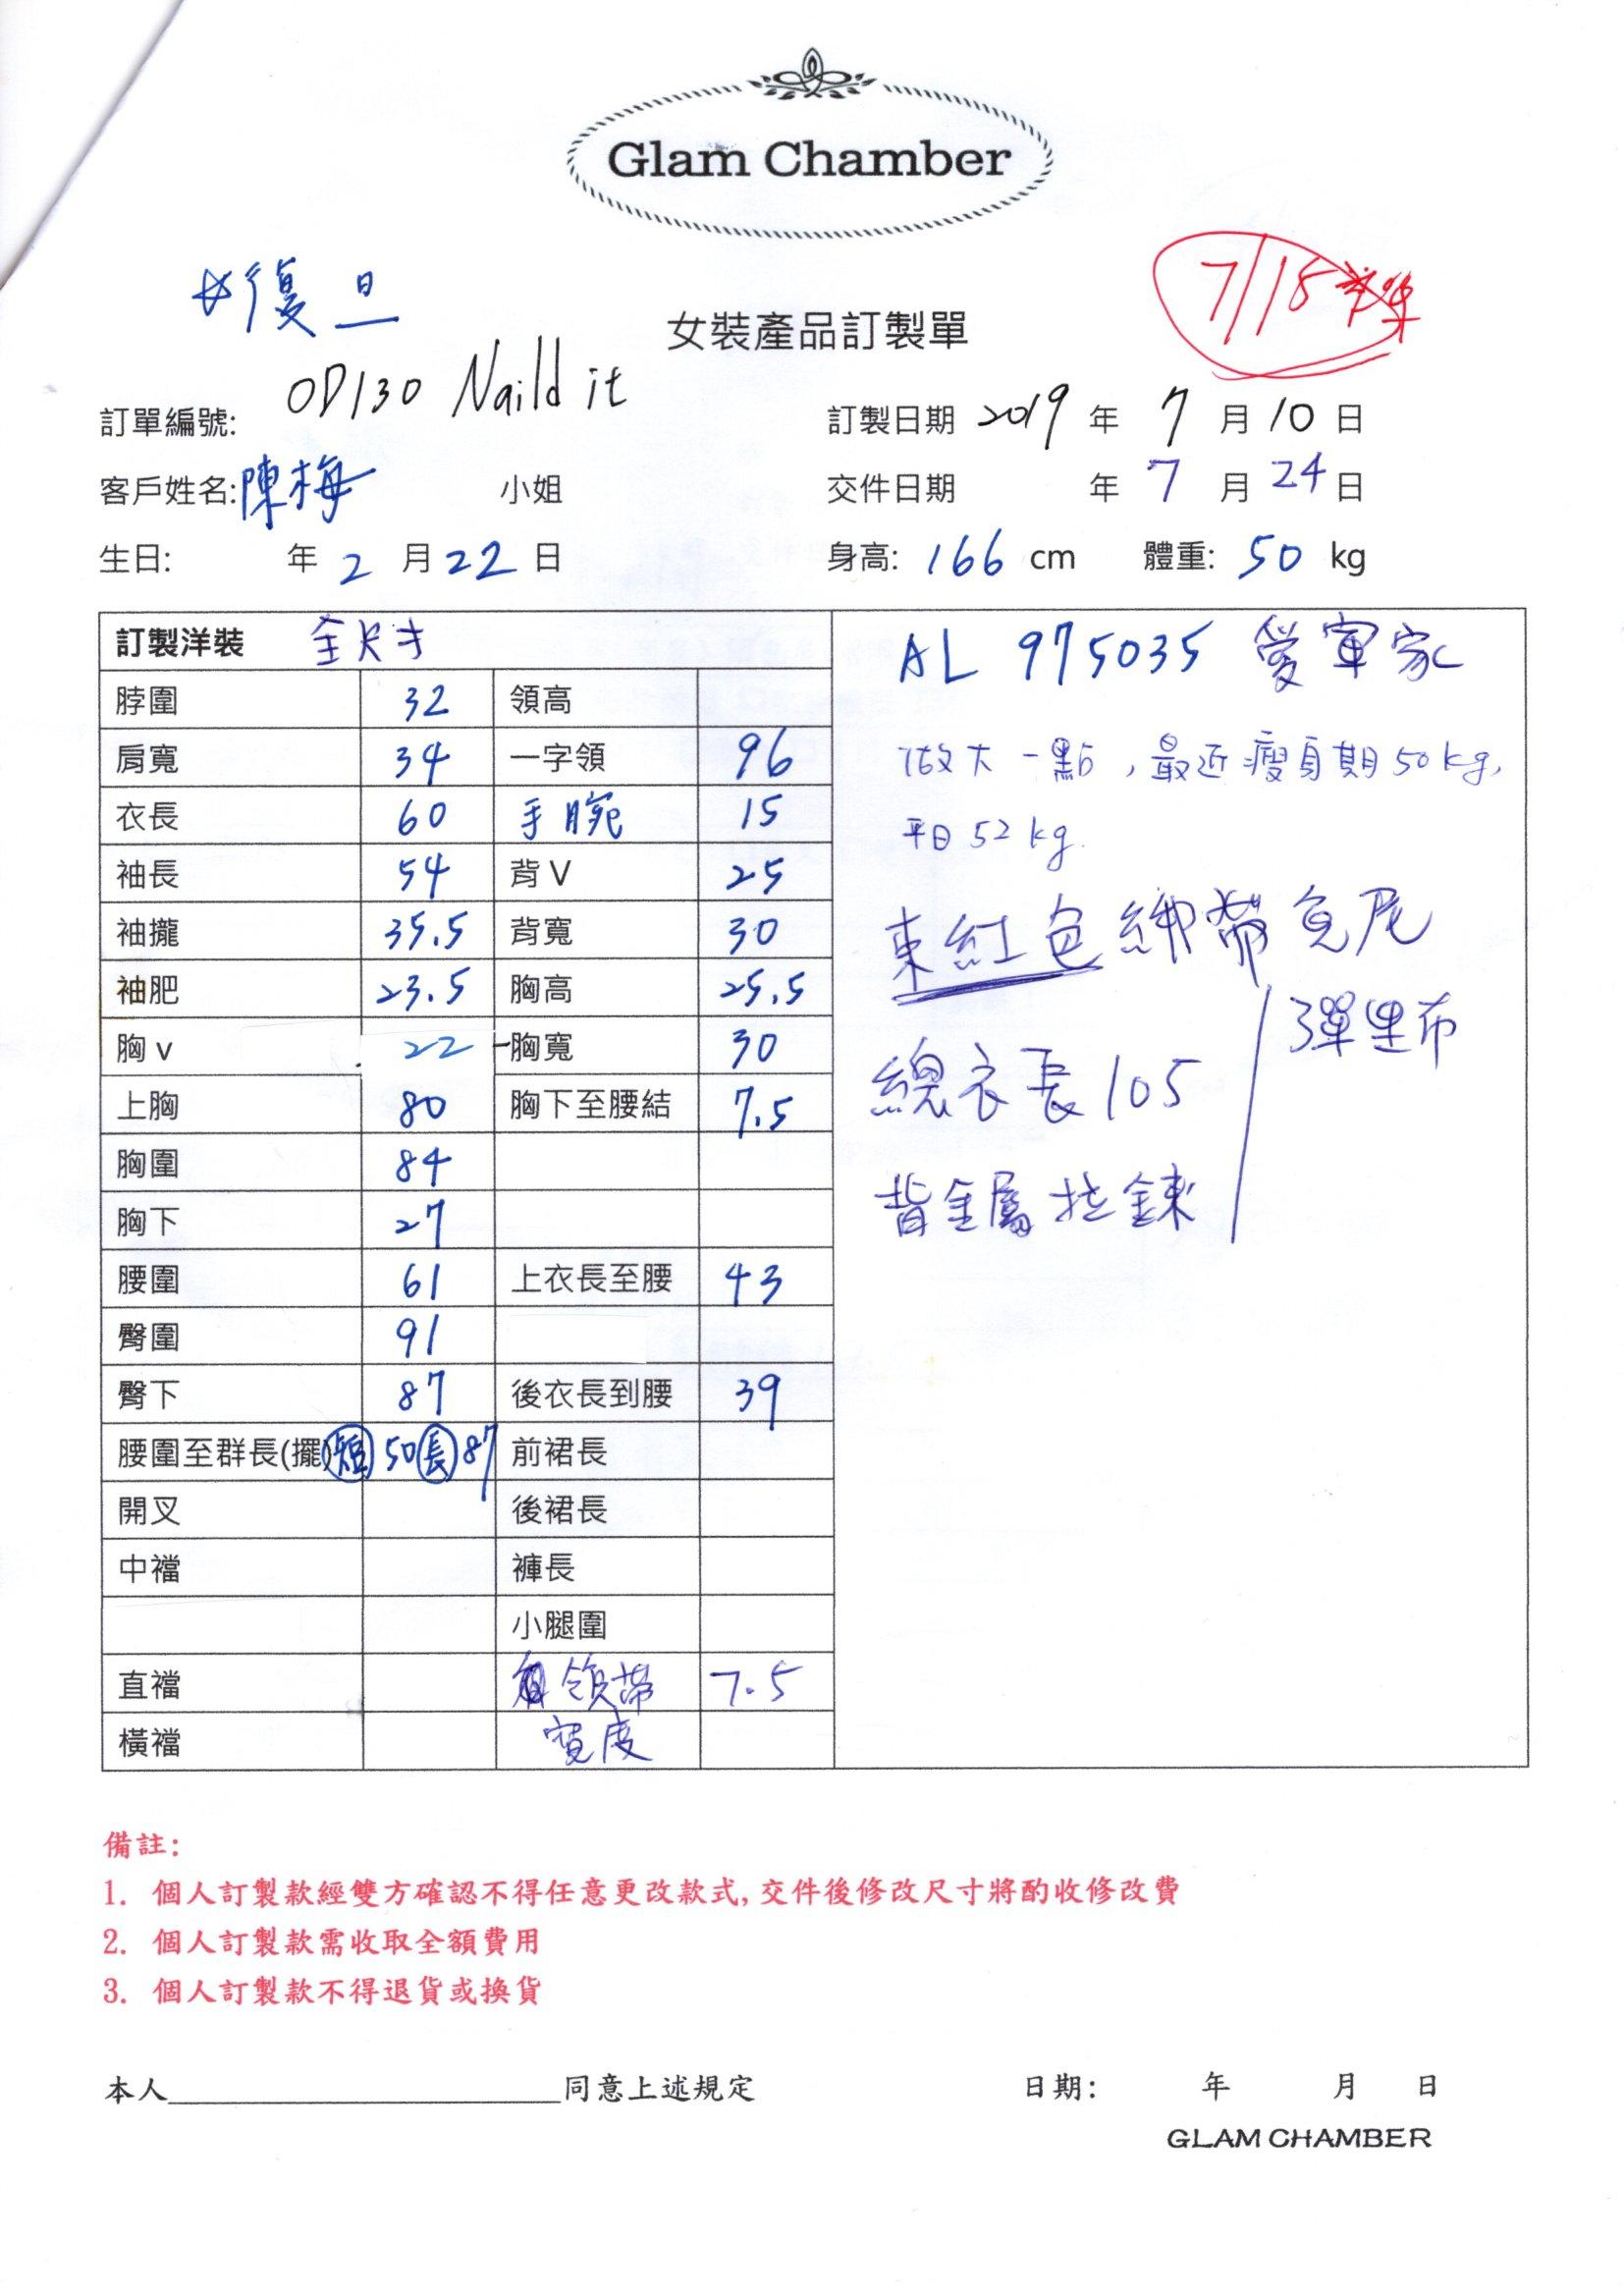 Glam Chamber
☆復旦
7/15
女裝產品訂製單
訂單編號: OD130 Naild it
訂製日期 2019 年 7 月 10 日
客戶姓名: 陳梅 小姐
交件日期 年 7 月 24 日
生日: 年 2 月 22 日
身高: 166 cm 體重: 50 kg
訂製洋裝 全尺寸
脖圍 32 領高
肩寬 34 一字領 96
衣長 60 手腕 15
袖長 54 背V 25
袖攏 35.5 背寬 30
袖肥 23.5 胸高 25.5
胸v 22 胸寬 30
上胸 80 胸下至腰結 7.5
胸圍 84
胸下 27
腰圍 61 上衣長至腰 43
臀圍 91
臀下 87 後衣長到腰 39
腰圍至群長(擺) 短 50 長 87 前裙長
開叉 後裙長
中襠 褲長
小腿圍
直襠 領帶 7.5
橫襠 寬度
AL 975035 愛軍家
做大一點，最近瘦身期50kg,
平日 52 kg.
束紅色綁帶魚尾
彈性布
總衣長105
背金屬拉鍊
備註:
1. 個人訂製款經雙方確認不得任意更改款式,交件後修改尺寸將酌收修改費
2. 個人訂製款需收取全額費用
3. 個人訂製款不得退貨或換貨
本人 同意上述規定
日期: 年 月 日
GLAM CHAMBER